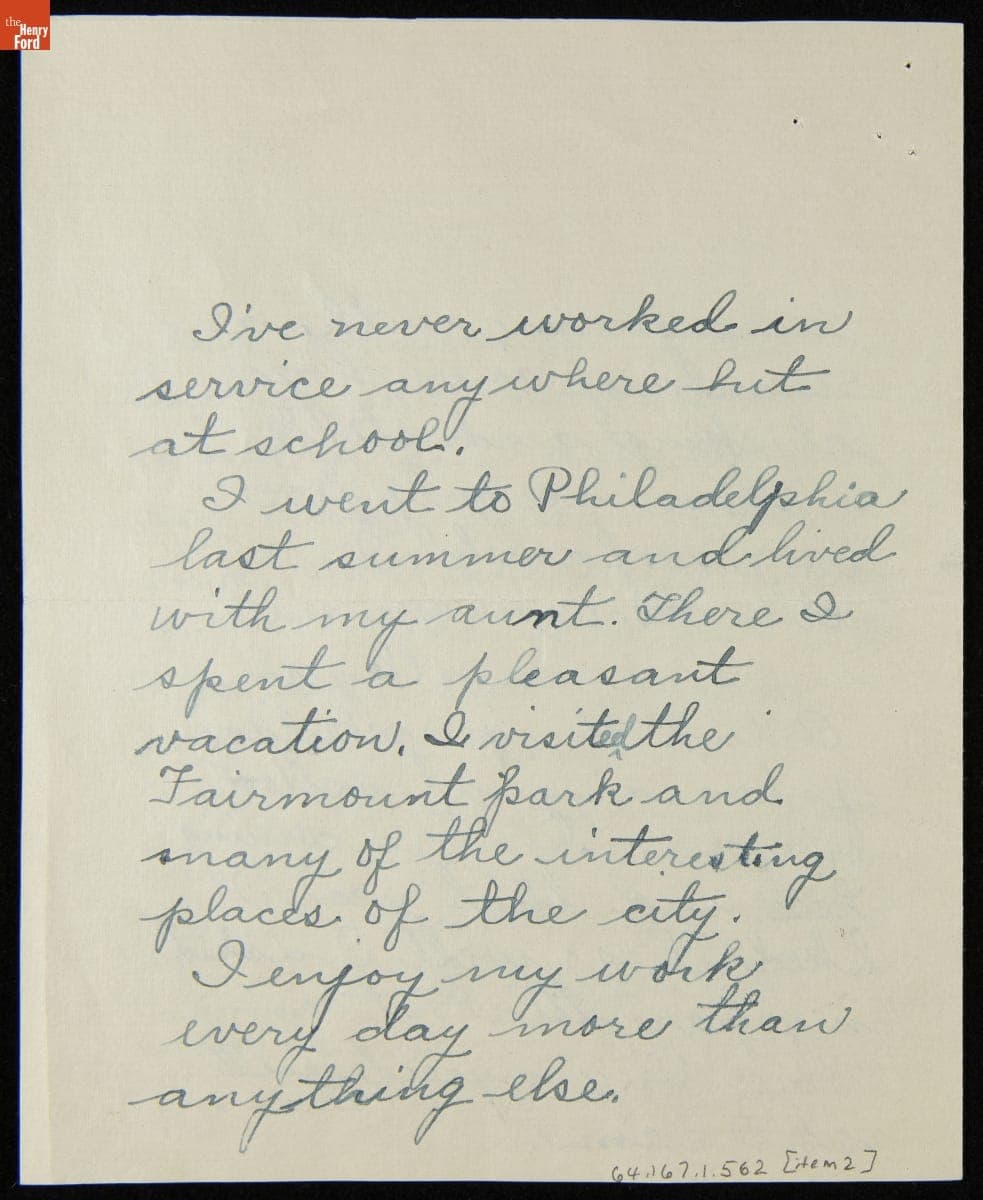 the
Henry
Ford
I've never worked in
service anywhere but
at school.
I went to Philadelphia
last summer and lived
with my aunt. There I
spent a pleasant
vacation. I visited the
Fairmount park and
many of the interesting
places of the city.
I enjoy my work
every day more than
anything else.
64.167.1.562 [item 2]